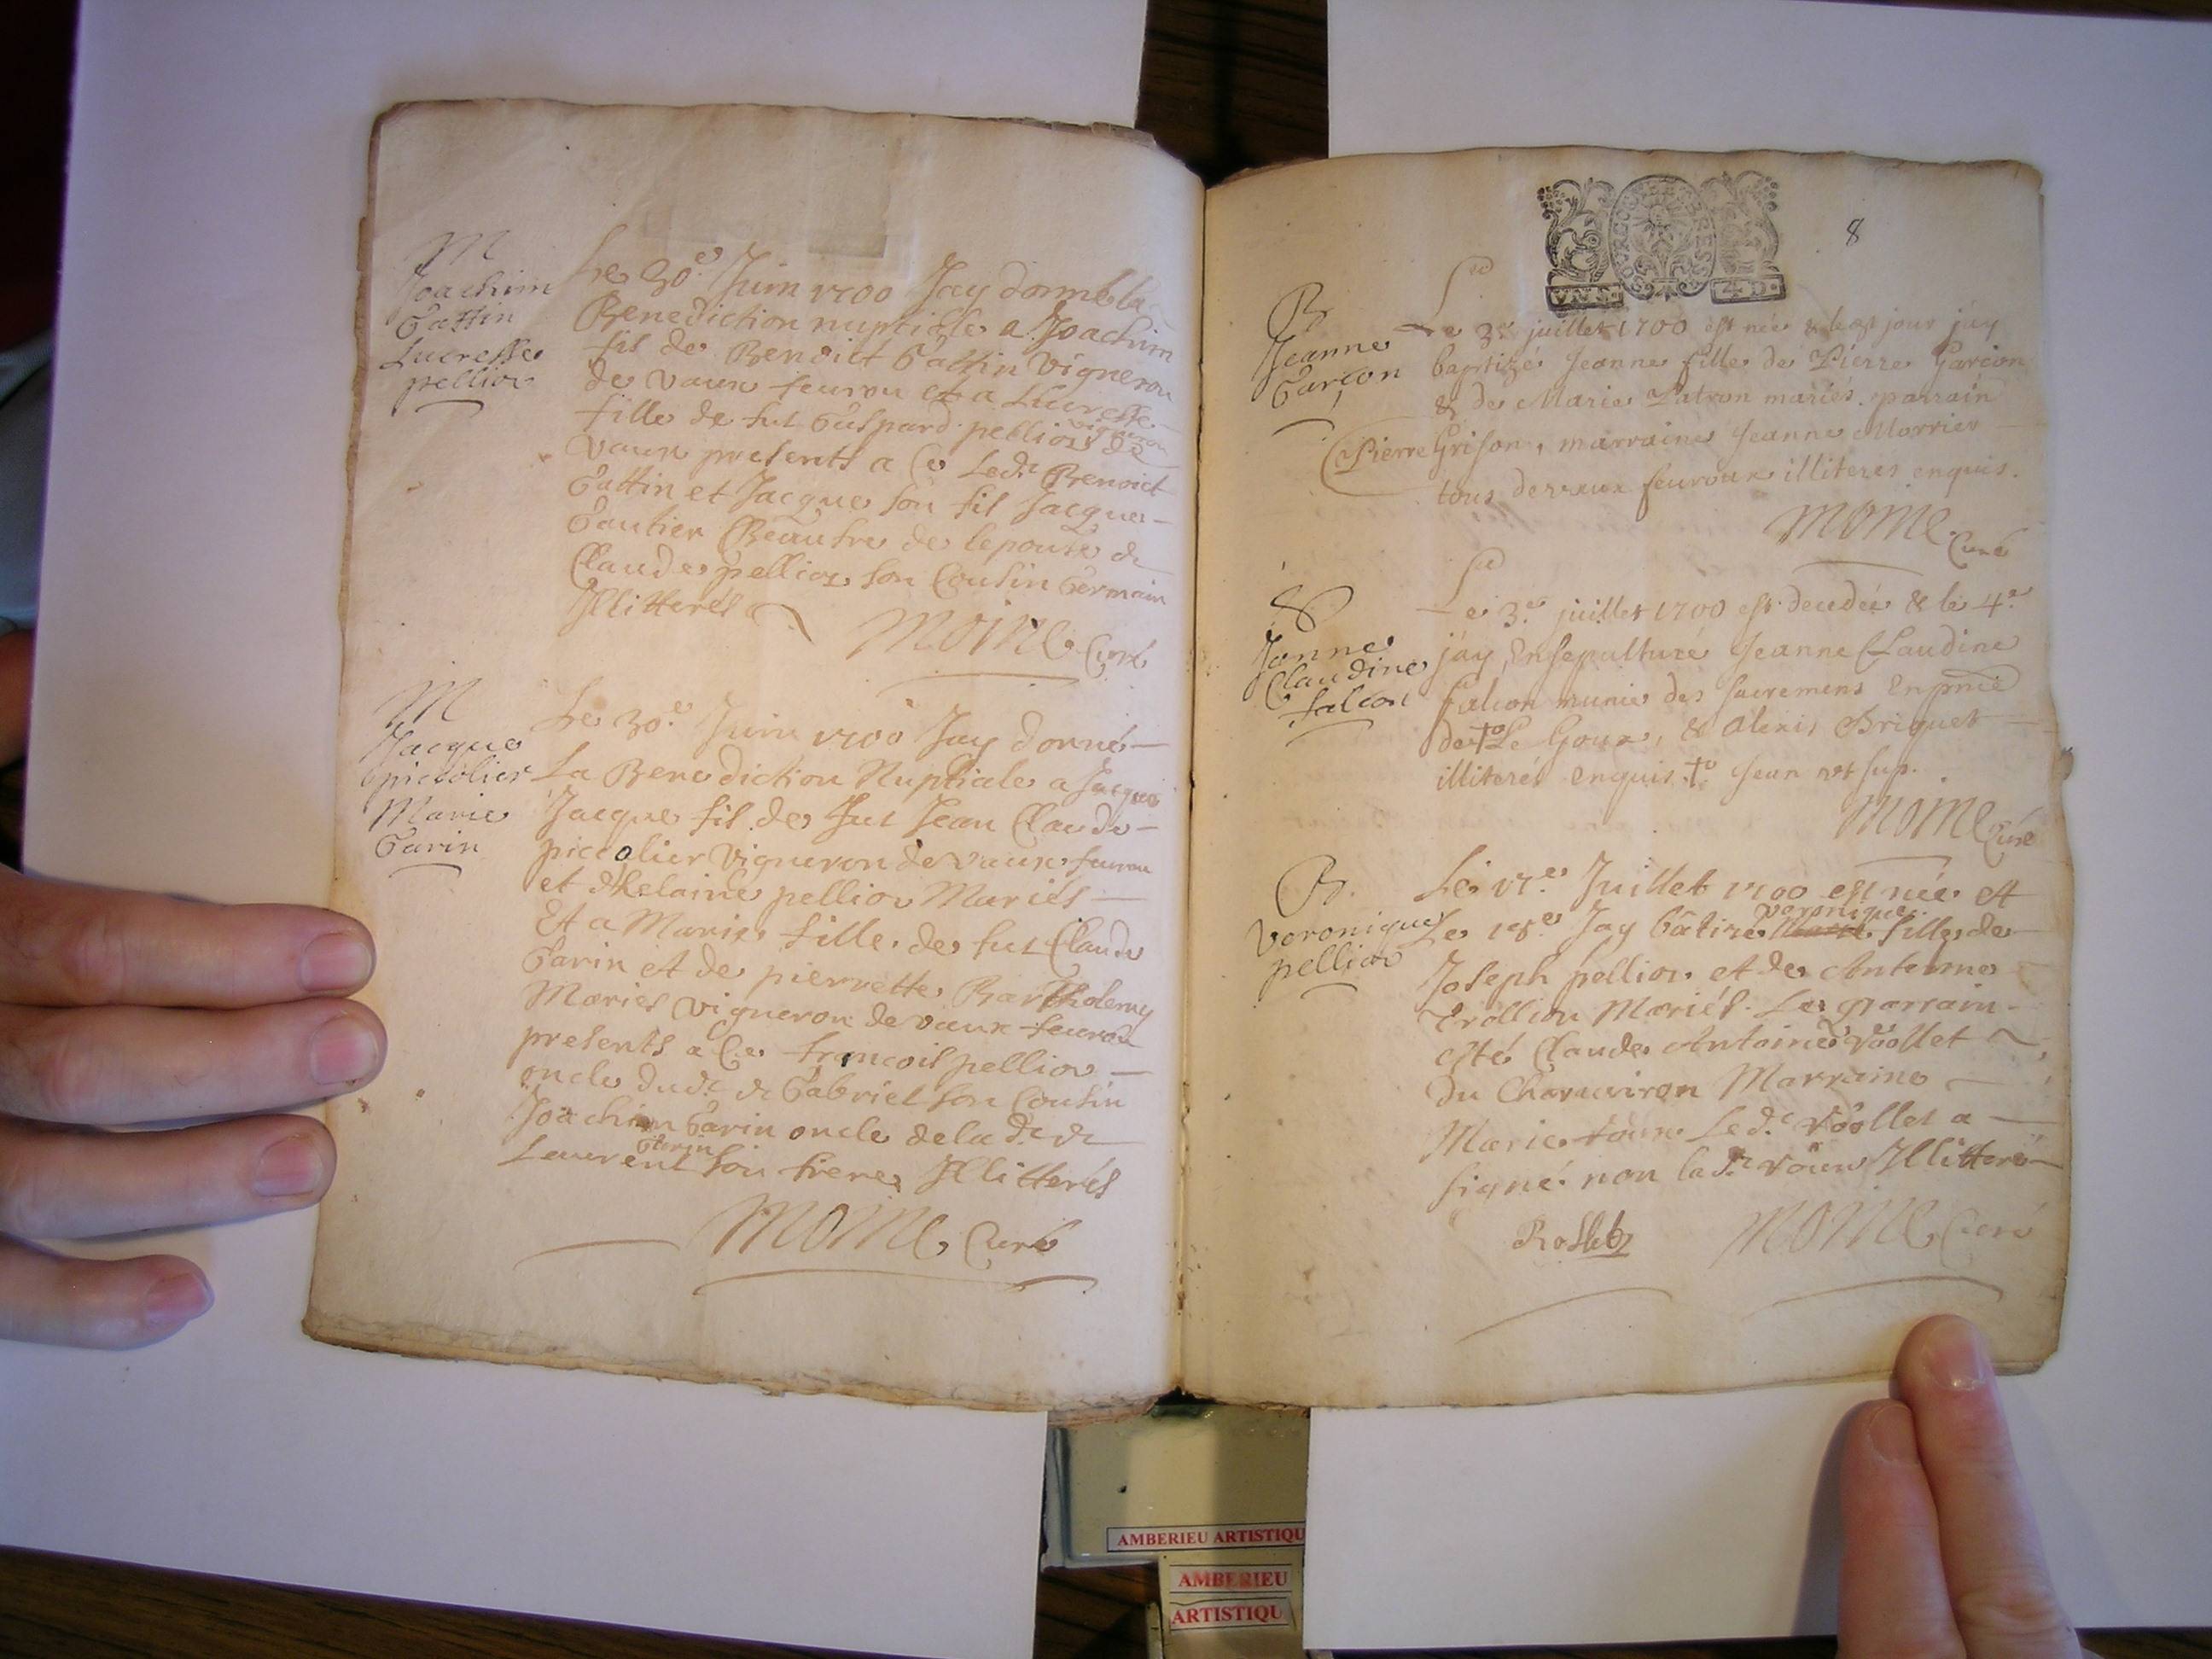 M
Joachim
Gattin
Lucresse
pellion
Le 30.e Juin 1700 Jay donné la
Benediction nuptiale a Joachim
fil de Benoict Gattin vigneron
de vaux feurou et a Lucresse
fille de fut Gaspard pellion vigneron de
vaux presents a Ce Led.t Benoict
Gattin et Jacque son fil Jacque
Gautier Beaufre de lepouse &
Claude pellion son Cousin Germain
Illitterés
Moine Curé
M
Jacque
piccolier
Marie
Garin
Le 30.e Juin 1700 Jay donné
La Benediction Nuptiale a Jacque
Jacque fil de fut Jean Claude
piccolier vigneron de vaux feurou
et dhelaine pellion Mariés
Et a Marie fille de fut Claude
Garin et de pierrette Bartholemy
Mariés vigneron de vaux feurou
presents a Ce francois pellion
oncle dud.t & Gabriel son Cousin
Joachim Garin oncle de la d.te &
Laurent Garin son frere Illitterés
Moine Curé
8
B
Jeanne
Garçon
Le 3.e juillet 1700 est née & le jour jay
baptizé Jeanne fille de Pierre Garcon
& de Marie Patron mariés. parrain
Pierre Grison, marraine Jeanne Morrier
tous de vaux feuroux illiterés enquis.
Moine Curé
S
Janne
Claudine
falcon
Le 3.e juillet 1700 est decedée & le 4.e
jáy Ensepulturé Jeanne Claudine
falcon munie des sacremens En pnce
de Le Goux, & Alexis Briquet
illiterés enquis. Jean nst sup.
Moine Curé
B.
Veronique
pellion
Le 17.e Juillet 1700 est née et
Le 18.e Jay bâtizé veronique fille de
Joseph pellion et de Antenne
Trollion Mariés. Le parrain
esté Claude Antoine Röollet
du Charveyron Marraine
Marie roux Led.t Röollet a
signé non la d.te roux Illitteré
Rollet
Moine Curé
AMBERIEU ARTISTIQU
AMBERIEU
ARTISTIQU